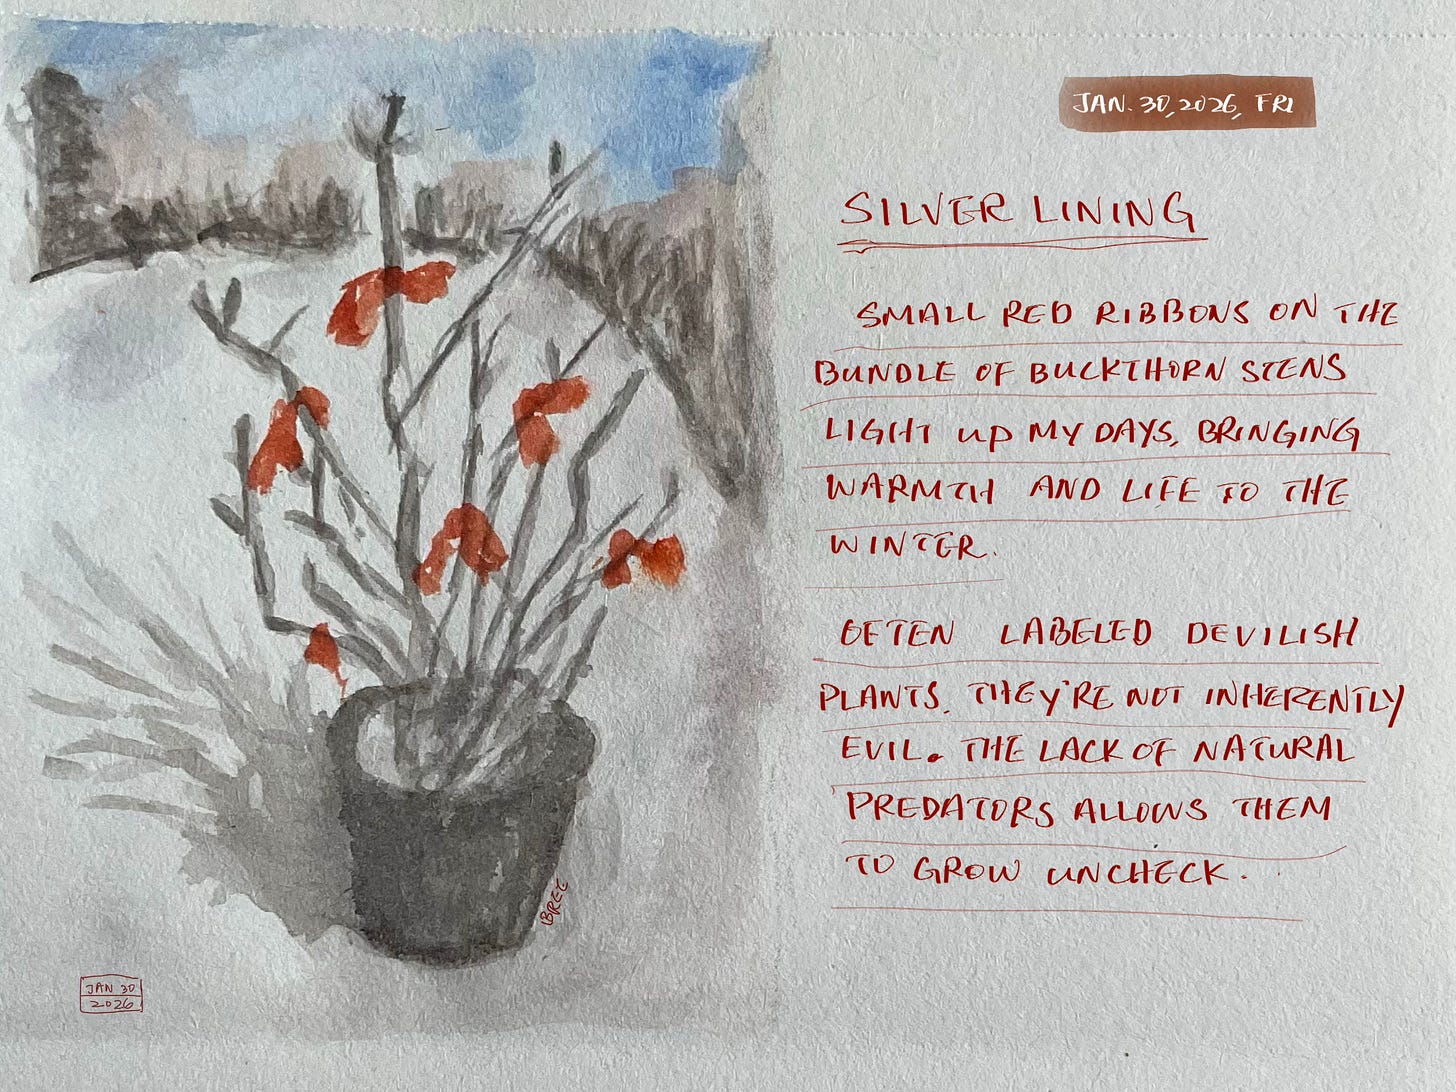 JAN. 30, 2026, FRI
SILVER LINING
SMALL RED RIBBONS ON THE
BUNDLE OF BUCKTHORN STENS
LIGHT UP MY DAYS, BRINGING
WARMTH AND LIFE TO THE
WINTER.
OFTEN LABELED DEVILISH
PLANTS. THEY'RE NOT INHERENTLY
EVIL. THE LACK OF NATURAL
PREDATORS ALLOWS THEM
TO GROW UNCHECK.
JAN 30
2026